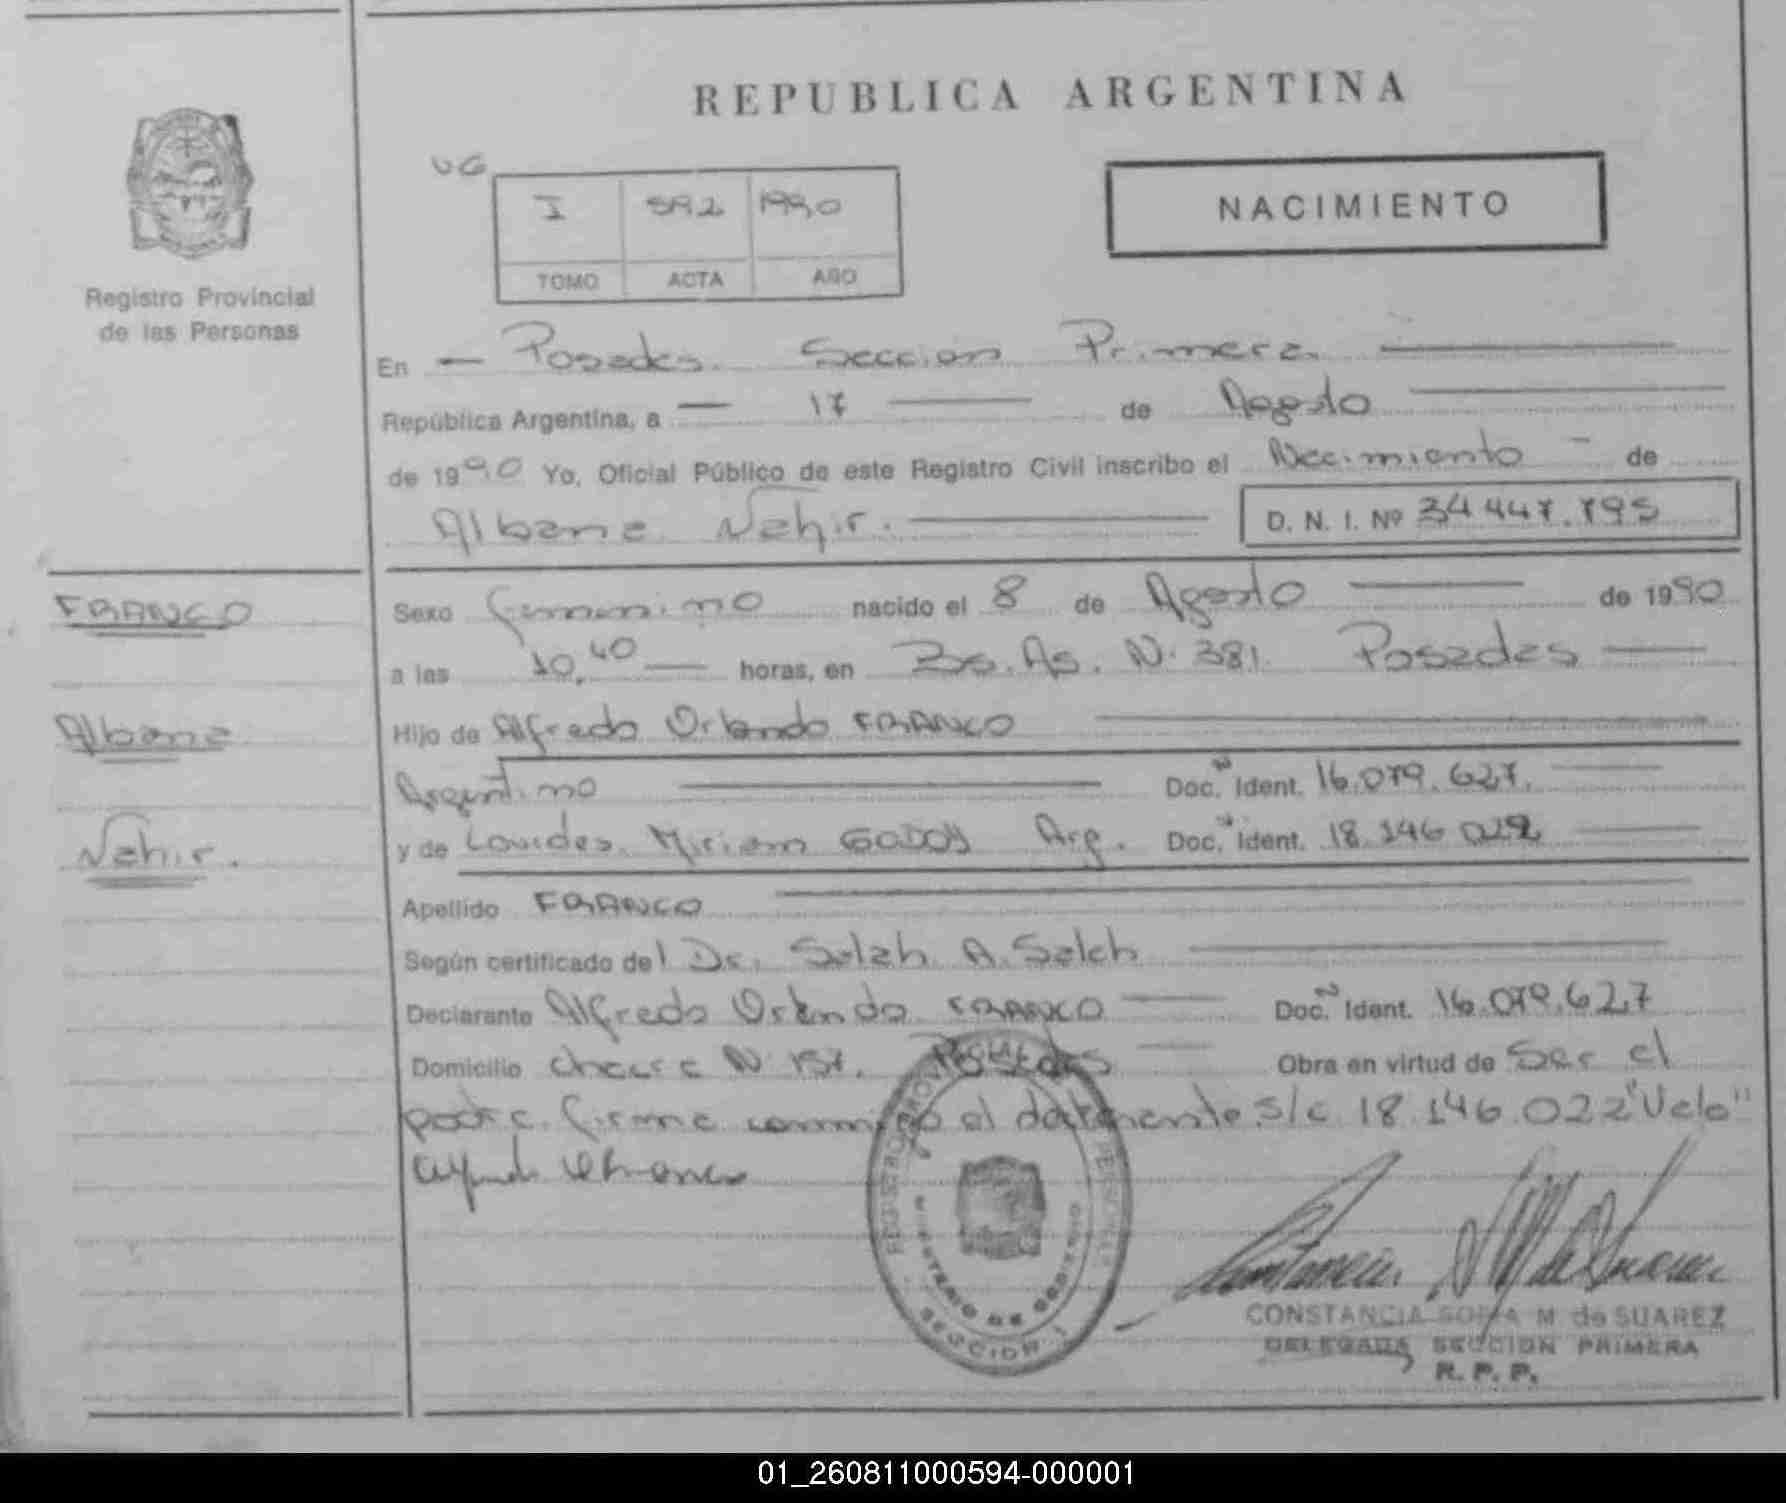 REPUBLICA ARGENTINA
UG
I 592 1990
TOMO ACTA AÑO
NACIMIENTO
Registro Provincial
de las Personas
En — Posadas. Sección Primera
República Argentina, a — 17 — de Agosto
de 1990 Yo, Oficial Público de este Registro Civil inscribo el Nacimiento - de
Albana Nahir. D. N. I. Nº 34.447.795
FRANCO
Albana
Nahir.
Sexo femenino nacido el 8 de Agosto de 1990
a las 10,40 — horas, en Bs. As. N. 381. Posadas
Hijo de Alfredo Orlando FRANCO
Argentino Doc. N Ident. 16.079.627.
y de Lourdes Miriam GODOY Arg. Doc. N Ident. 18.146.022
Apellido FRANCO
Según certificado del Dr. Salah A. Saleh
Declarante Alfredo Orlando FRANCO Doc. N Ident. 16.079.627
Domicilio chacra N 157. Posadas Obra en virtud de Ser el
padre. firma conmigo el declarante. S/c 18.146.022 "Vale"
REGISTRO PROVINCIAL DE LAS PERSONAS
MINISTERIO DE GOBIERNO
SECCION 1
CONSTANCIA SOFIA M de SUAREZ
DELEGADA SECCION PRIMERA
R. P. P.
01_260811000594-000001